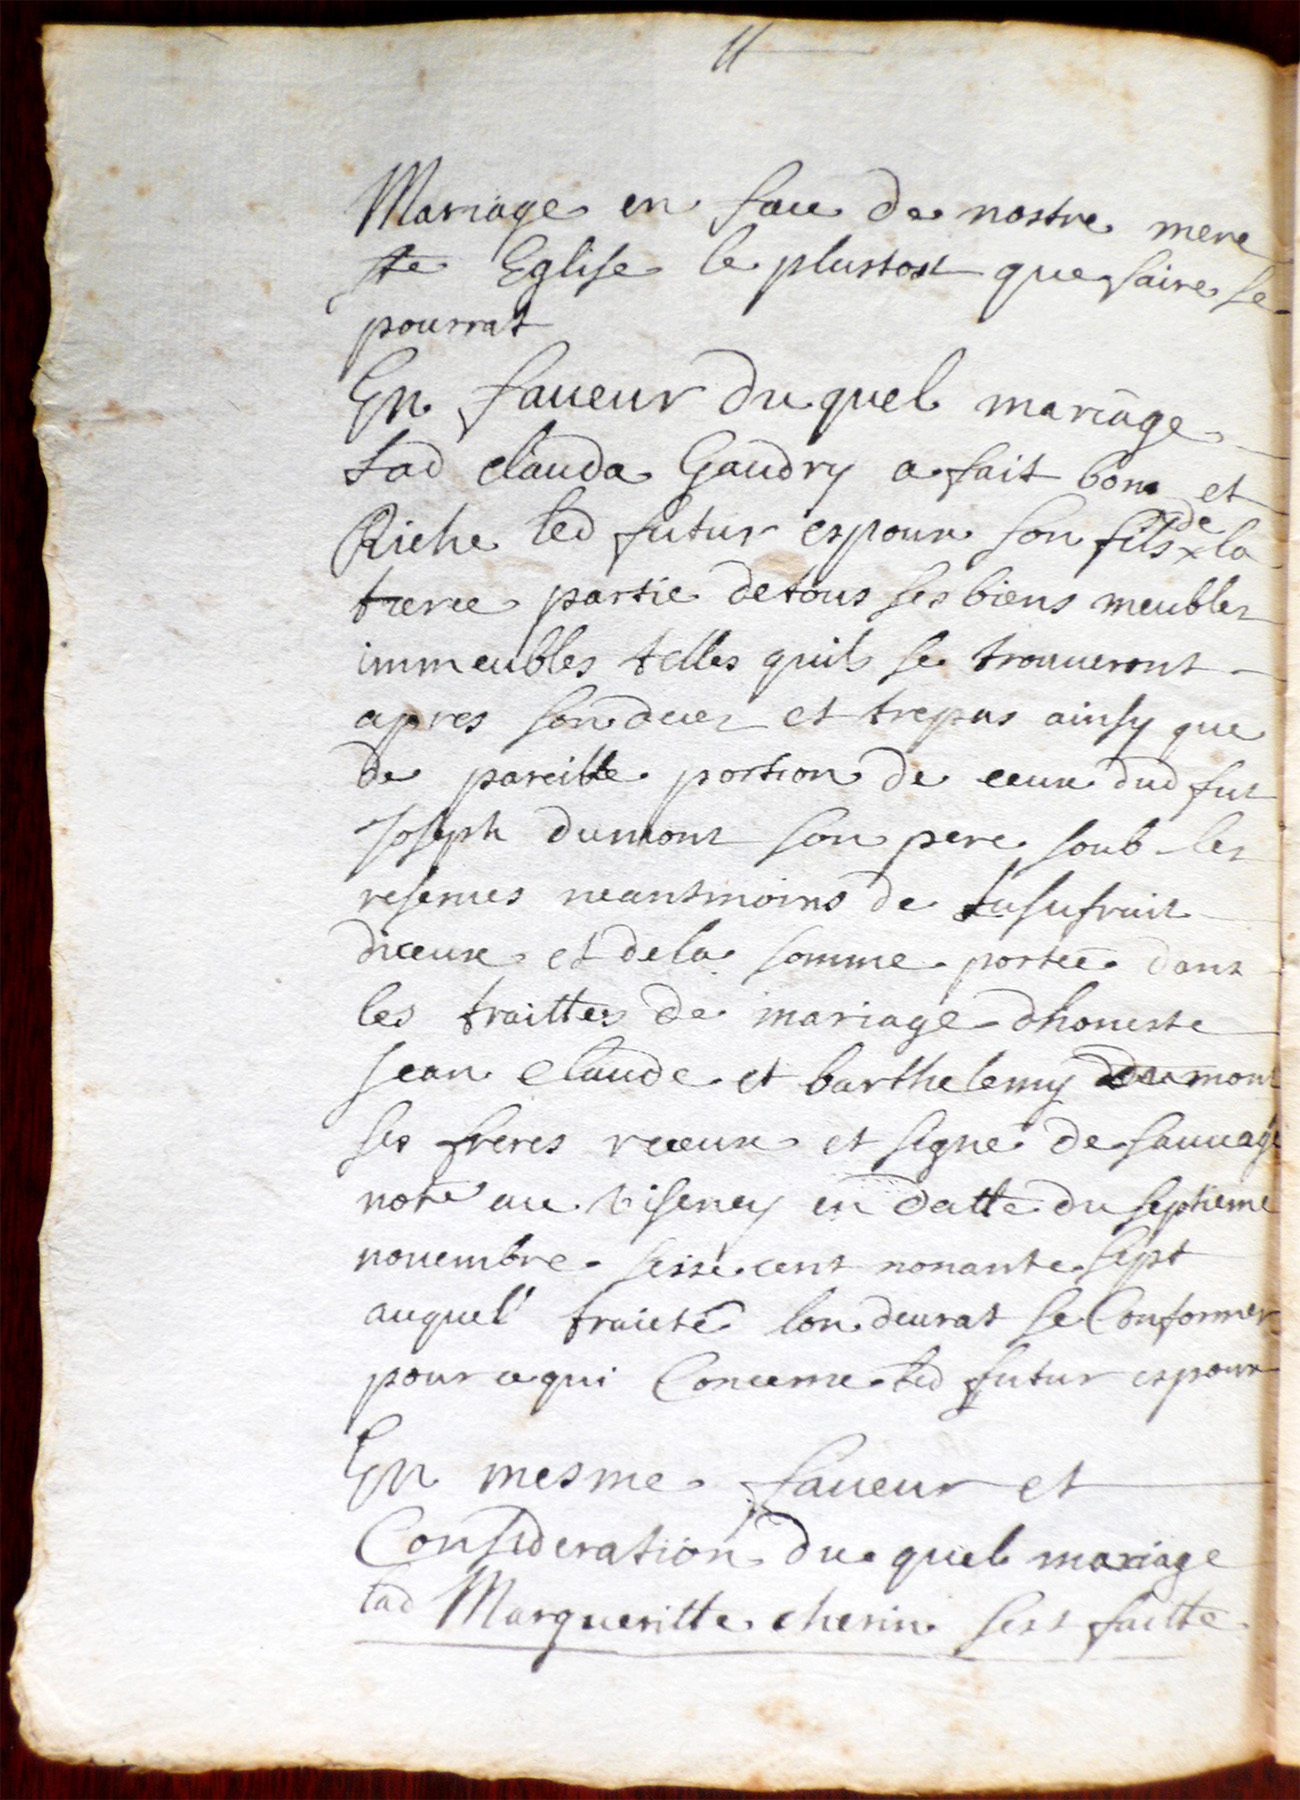 Mariage en face de nostre mere
ste Eglise le plustost que faire se
pourrat
En faueur du quel mariage
lad clauda Gaudry a fait bon et
Riche led futur espoux son fils de la
tierce partie de tous ses biens meubles
immeubles telles quils se trouueront
apres son deces et trepas ainsy que
de pareille portion de ceux dud fut
Joseph dumont son pere soub les
reserues neantmoins de lusufruit
diceux et de la somme portée dans
les traittes de mariage dhoneste
Jean Claude et barthelemy dumont
ses freres receux et signé de sauuage
notre au Viseney en datte du septieme
nouembre seize cent nonante sept
auquel traicté lon deurat se Conformer
pour ce qui Concerne led futur espoux
En mesme faueur et
Consideration du quel mariage
lad Margueritte cherin sest faitte